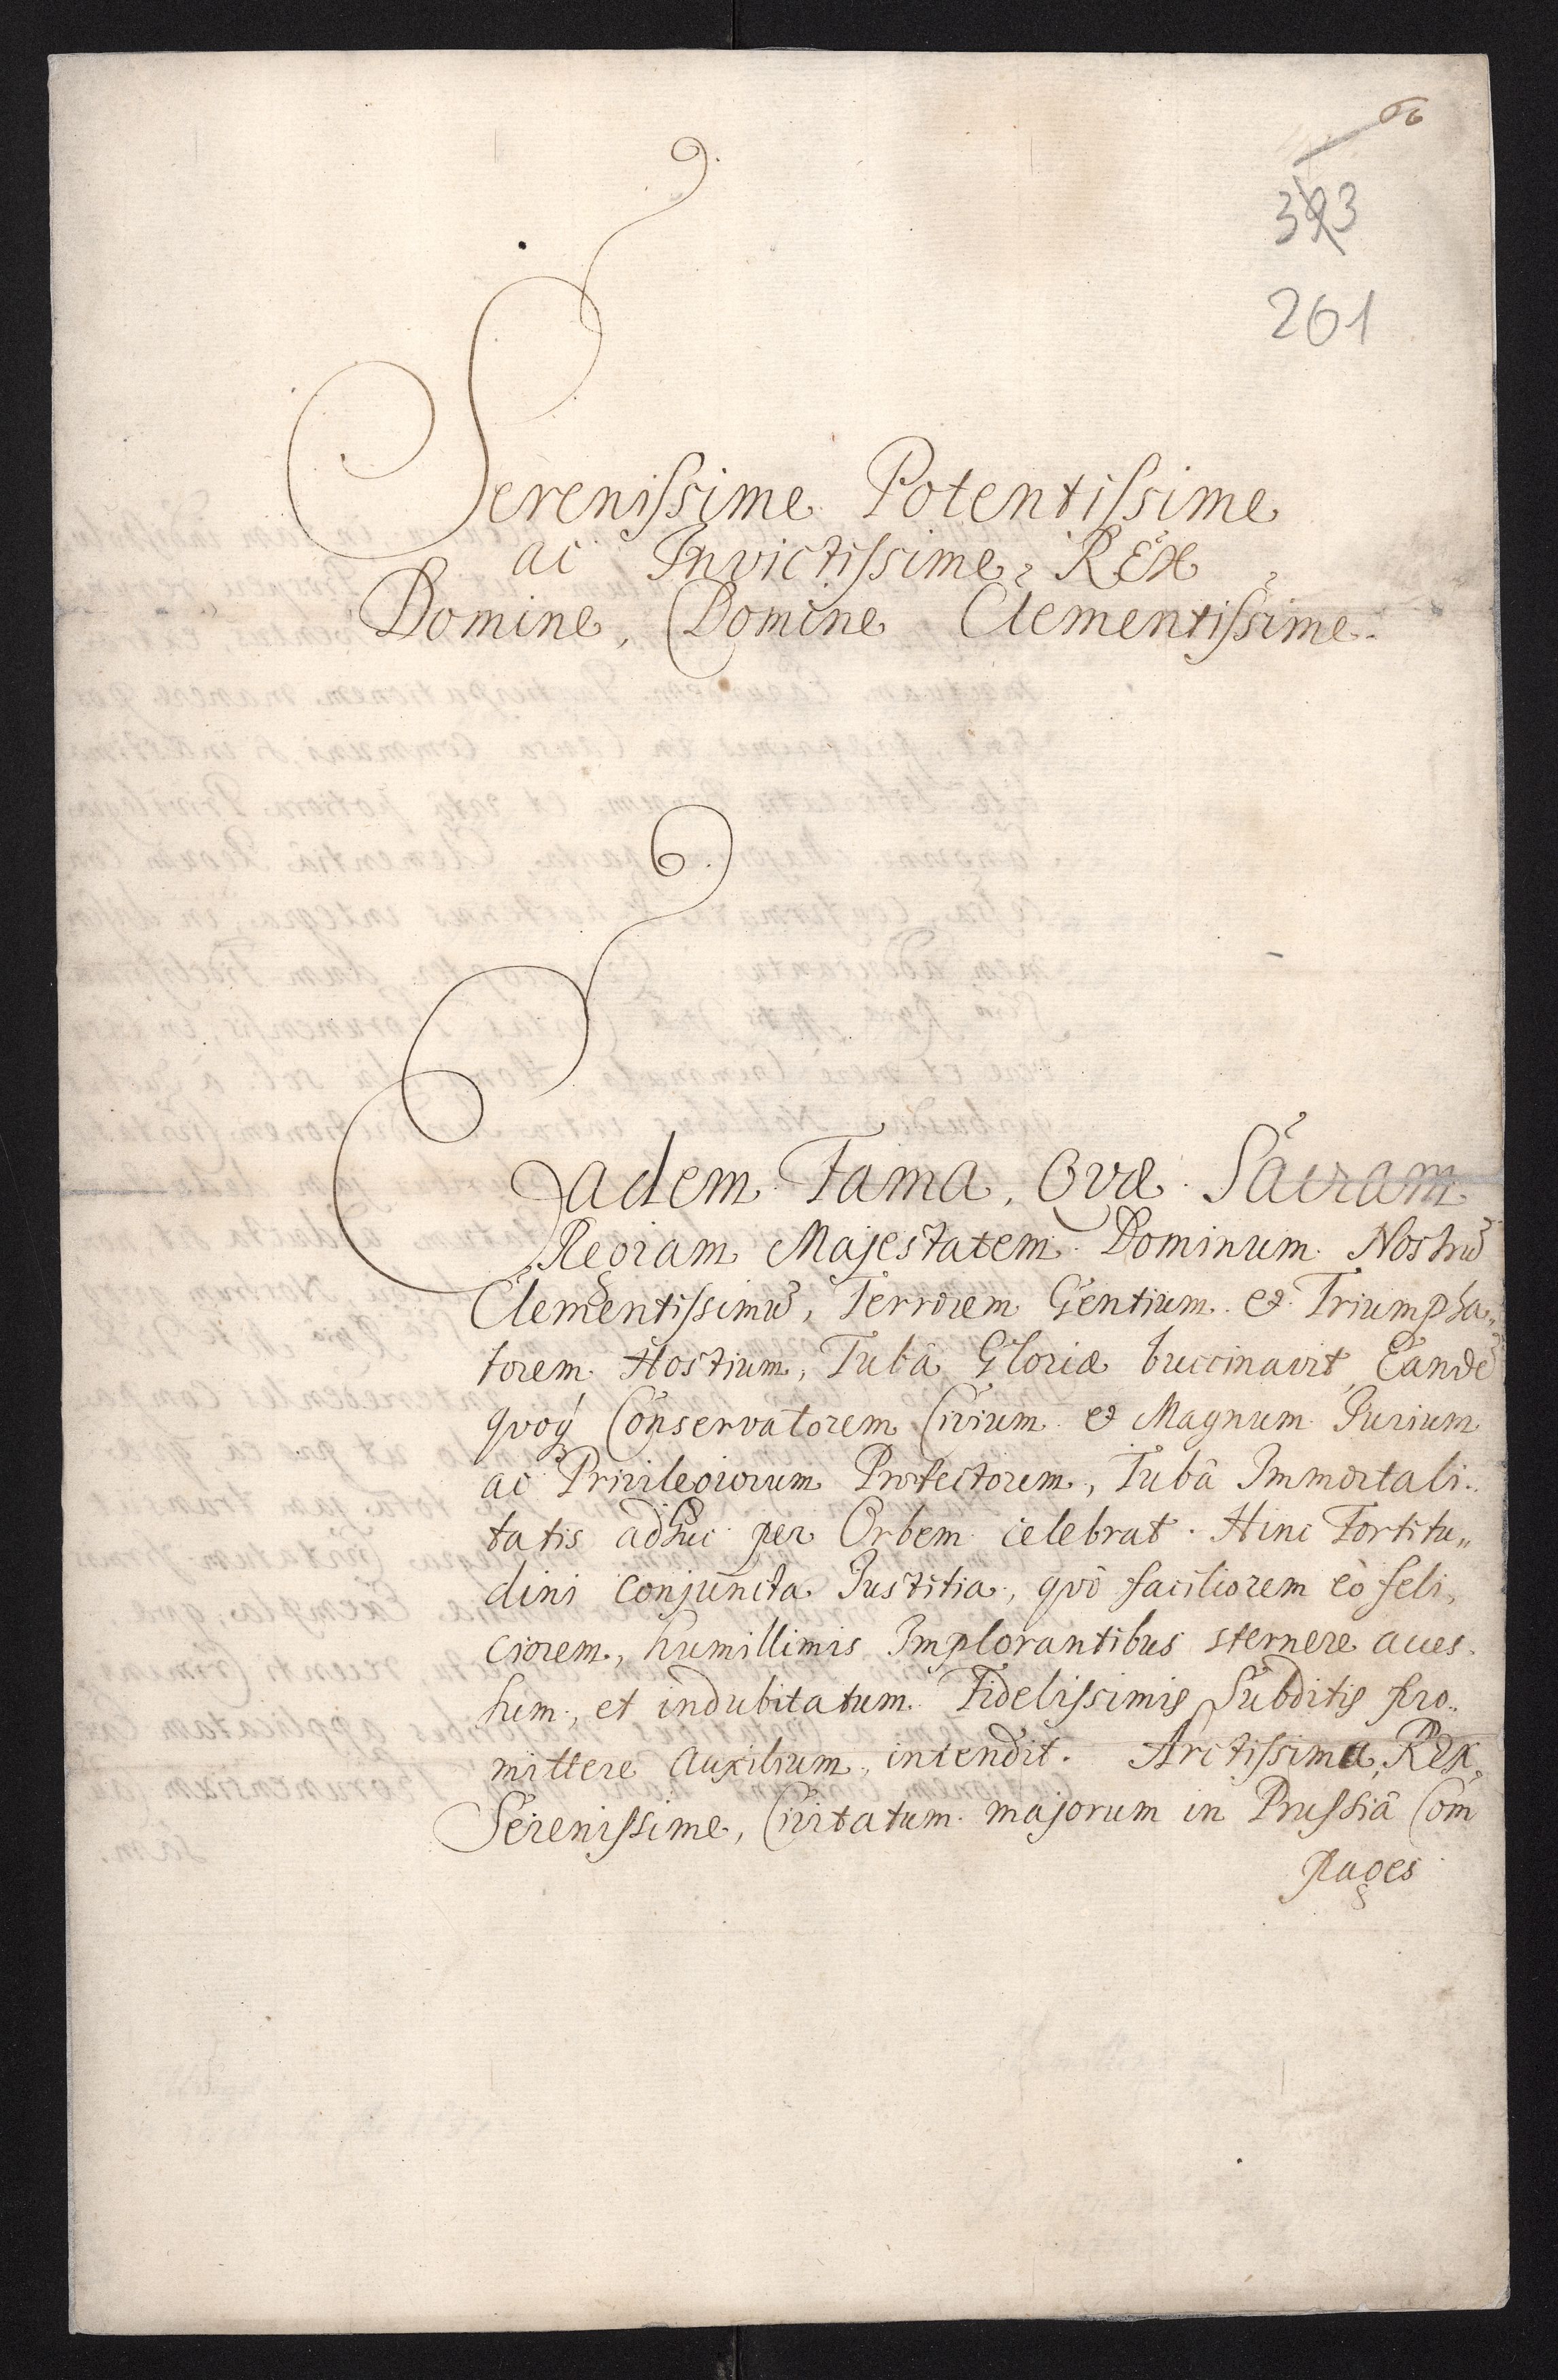 66
393
261
Serenissime Potentissime
ac Invictissime REX
Domine, Domine Clementissime.
Eadem Fama, Qvæ Sacram
Regiam Majestatem Dominum Nostrũ
Clementissimũ, Terrorem Gentium et Triumpha„
torem Hostium, Tubâ Gloriæ buccinavit, Eandẽ
qvoq́ Conservatorem Civium et Magnum Jurium
ac Privilegiorum Protectorem, Tubâ Immortali„
tatis adhuc per Orbem celebrat. Hinc Fortitu„
dini conjuncta Justitia, qvò faciliorem eò feli„
ciorem, humillimis Implorantibus sternere acces„
sum, et indubitatum Fidelissimis Subditis pro„
mittere Auxilium intendit. Arctissima, REX
Serenissime, Civitatum majorum in Prussiâ Com
pages